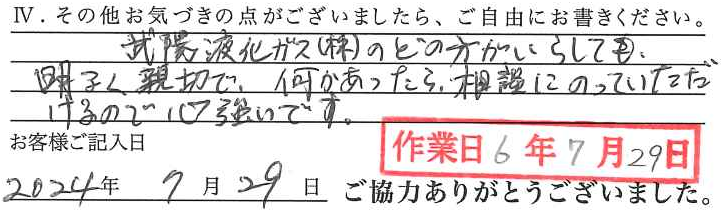 Ⅳ．その他お気づきの点がございましたら、ご自由にお書きください。
武陽液化ガス(株)のどの方がいらしても、
明るく親切で、何かあったら、相談にのっていただ
けるので心強いです。
お客様ご記入日
作業日 6年7月29日
2024年 7月29日 ご協力ありがとうございました。